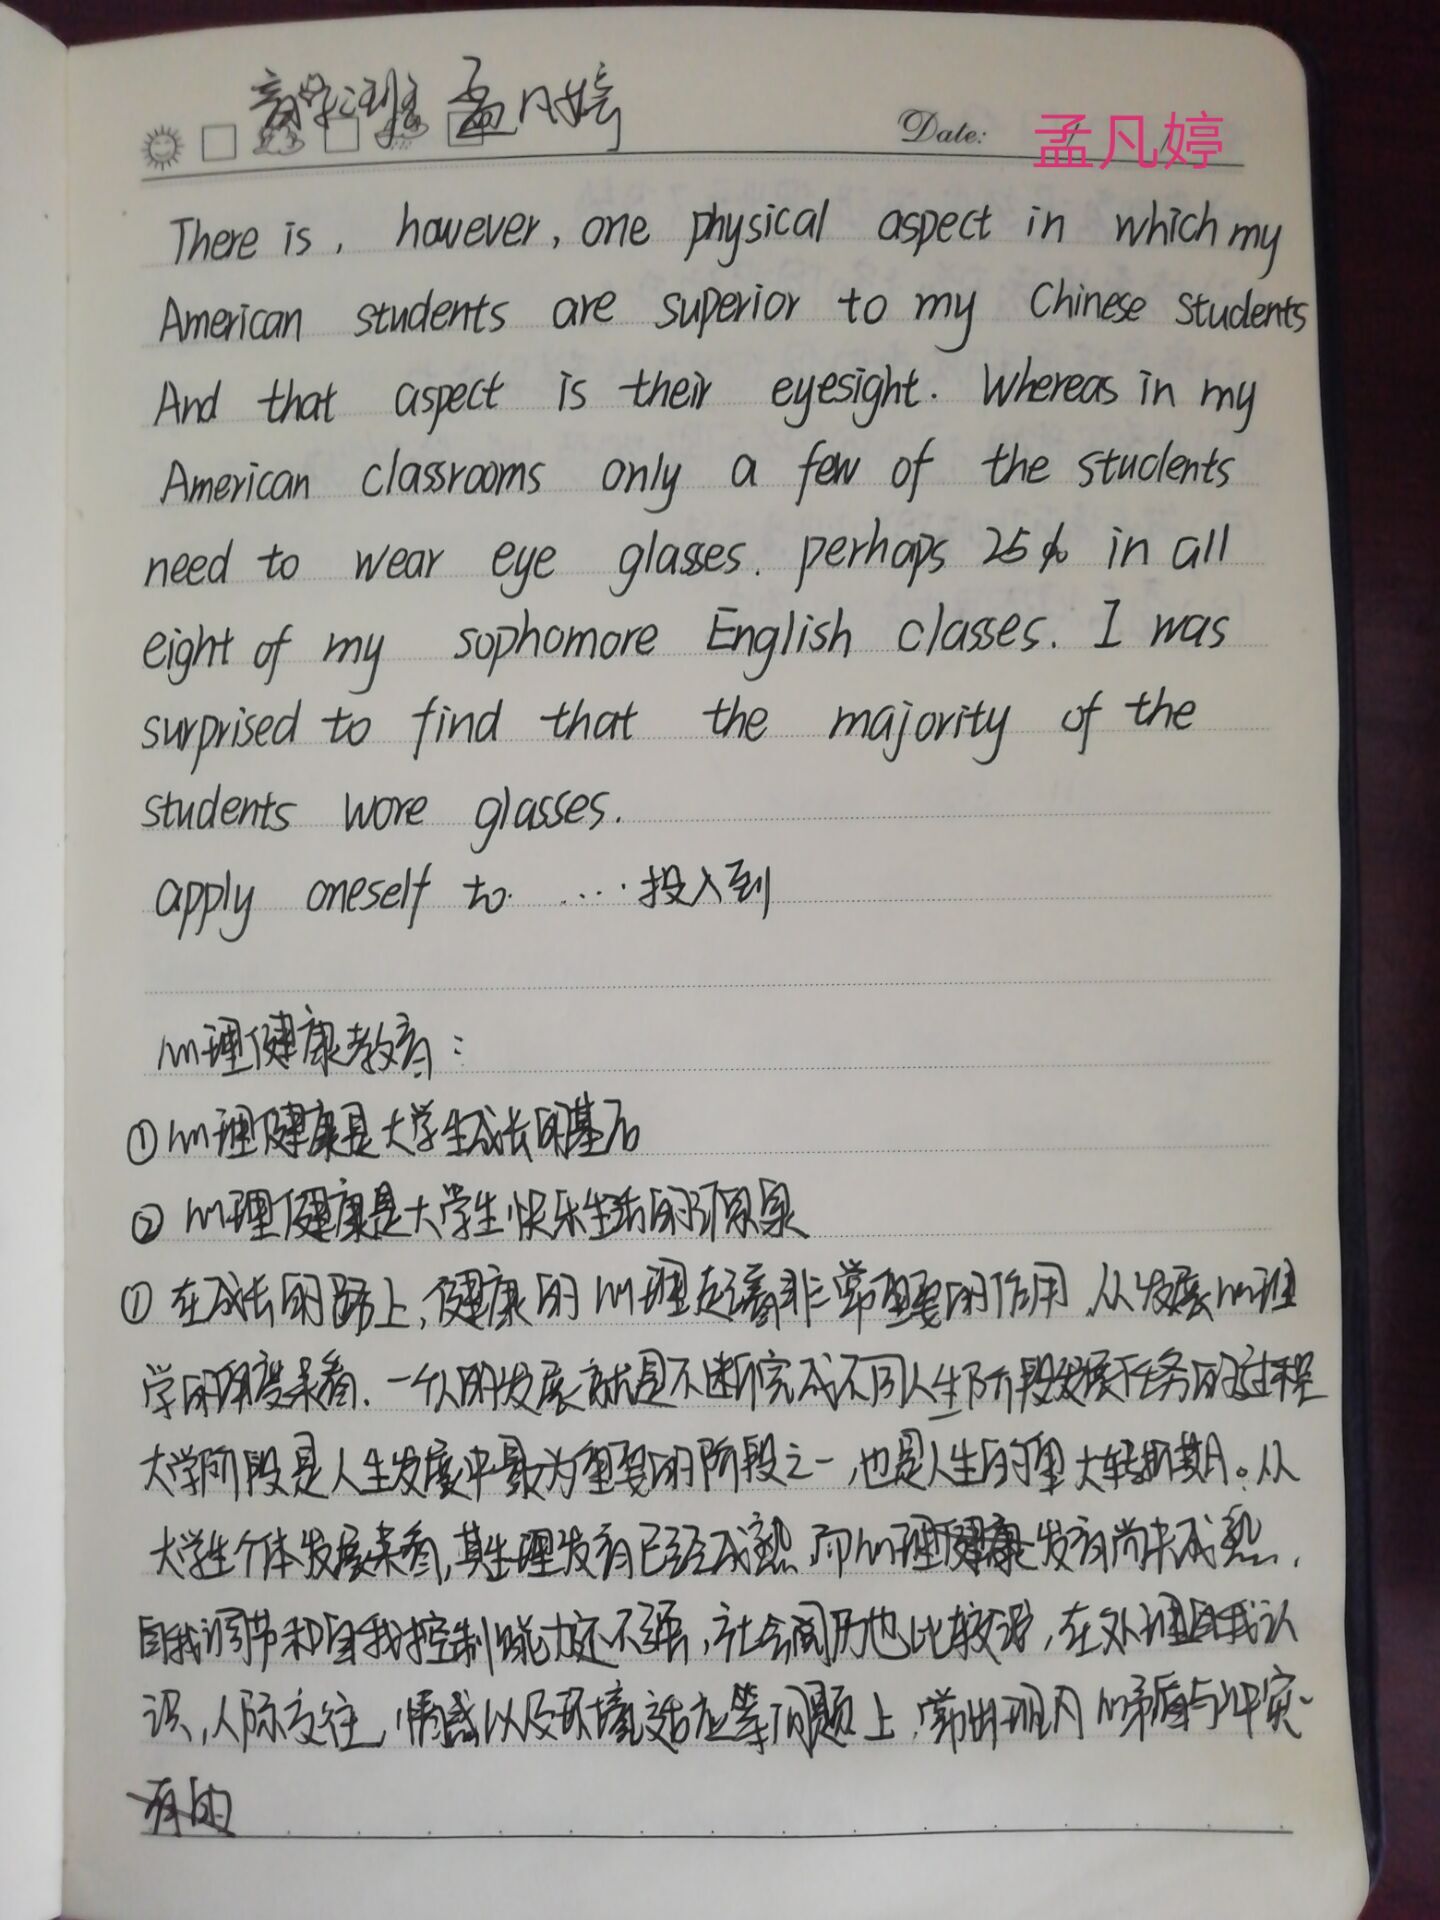 孟凡婷
Date: 孟凡婷
There is, however, one physical aspect in which my
American students are superior to my Chinese students
And that aspect is their eyesight. Whereas in my
American classrooms only a few of the students
need to wear eye glasses. perhaps 25% in all
eight of my sophomore English classes. I was
surprised to find that the majority of the
students wore glasses.
apply oneself to ... 投入到
心理健康教育:
① 心理健康是大学生成长的基石
② 心理健康是大学生快乐生活的源泉
① 在成长的路上,健康的心理起着非常重要的作用,从发展心理
学的角度来看,一个人的发展就是不断完成不同人生阶段发展任务的过程
大学阶段是人生发展中最为重要的阶段之一,也是人生的重大转折期。从
大学生个体发展来看,其生理发育已经成熟,而心理健康发育尚未成熟,
自我调节和自我控制能力还不强,社会阅历也比较浅,在处理自我认
识,人际交往,情感以及环境适应等问题上,常出现内心矛盾与冲突
有的